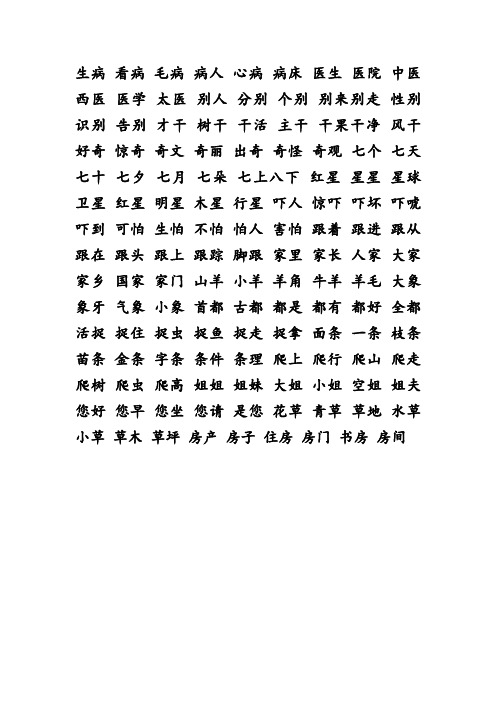 生病 看病 毛病 病人 心病 病床 医生 医院 中医
西医 医学 太医 别人 分别 个别 别来别走 性别
识别 告别 才干 树干 干活 主干 干果干净 风干
好奇 惊奇 奇文 奇丽 出奇 奇怪 奇观 七个 七天
七十 七夕 七月 七朵 七上八下 红星 星星 星球
卫星 红星 明星 木星 行星 吓人 惊吓 吓坏 吓唬
吓到 可怕 生怕 不怕 怕人 害怕 跟着 跟进 跟从
跟在 跟头 跟上 跟踪 脚跟 家里 家长 人家 大家
家乡 国家 家门 山羊 小羊 羊角 牛羊 羊毛 大象
象牙 气象 小象 首都 古都 都是 都有 都好 全都
活捉 捉住 捉虫 捉鱼 捉走 捉拿 面条 一条 枝条
苗条 金条 字条 条件 条理 爬上 爬行 爬山 爬走
爬树 爬虫 爬高 姐姐 姐妹 大姐 小姐 空姐 姐夫
您好 您早 您坐 您请 是您 花草 青草 草地 水草
小草 草木 草坪 房产 房子 住房 房门 书房 房间